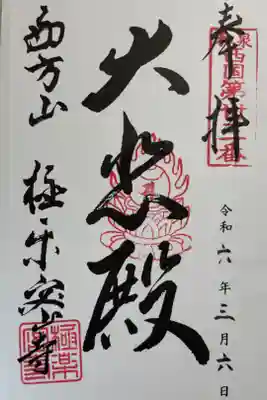 奉拝
令和六年三月六日
大悲殿
西方山 極楽密寺